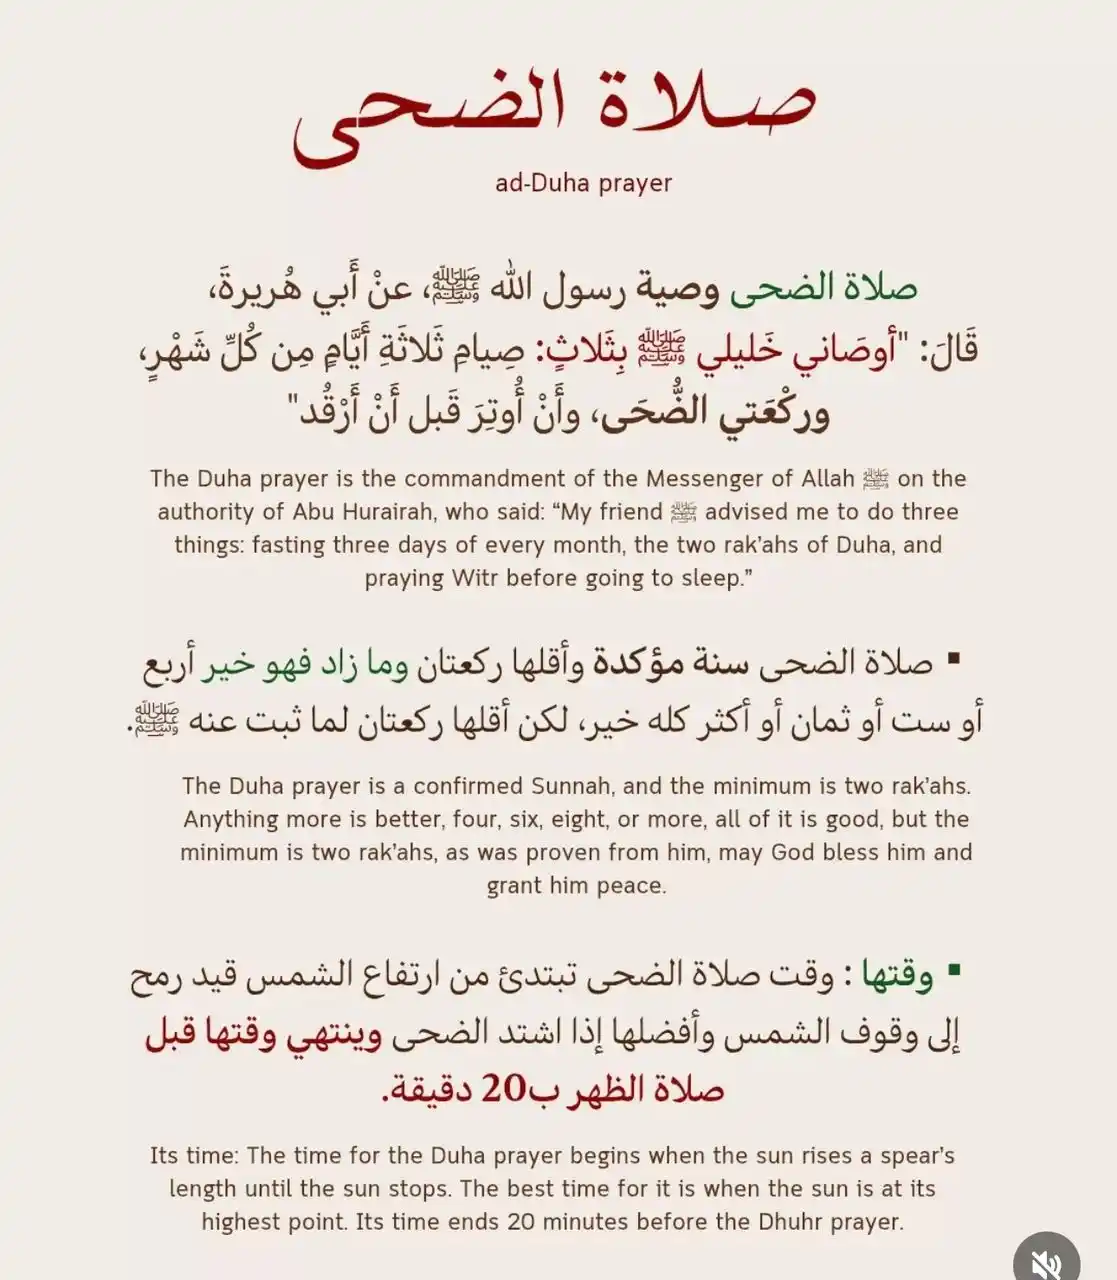 صلاة الضحى
ad-Duha prayer
صلاة الضحى وصية رسول الله ﷺ، عنْ أَبي هُريرةَ،
قَالَ: "أوصَاني خَليلي ﷺ بِثَلاثٍ: صِيامِ ثَلاثَةِ أَيَّامٍ مِن كُلِّ شَهْرٍ،
وركْعَتي الضُّحَى، وأَنْ أُوتِرَ قَبل أَنْ أَرْقُد"
The Duha prayer is the commandment of the Messenger of Allah ﷺ on the
authority of Abu Hurairah, who said: “My friend ﷺ advised me to do three
things: fasting three days of every month, the two rak’ahs of Duha, and
praying Witr before going to sleep.”
▪ صلاة الضحى سنة مؤكدة وأقلها ركعتان وما زاد فهو خير أربع
أو ست أو ثمان أو أكثر كله خير، لكن أقلها ركعتان لما ثبت عنه ﷺ.
The Duha prayer is a confirmed Sunnah, and the minimum is two rak’ahs.
Anything more is better, four, six, eight, or more, all of it is good, but the
minimum is two rak’ahs, as was proven from him, may God bless him and
grant him peace.
▪ وقتها : وقت صلاة الضحى تبتدئ من ارتفاع الشمس قيد رمح
إلى وقوف الشمس وأفضلها إذا اشتد الضحى وينتهي وقتها قبل
صلاة الظهر ب20 دقيقة.
Its time: The time for the Duha prayer begins when the sun rises a spear’s
length until the sun stops. The best time for it is when the sun is at its
highest point. Its time ends 20 minutes before the Dhuhr prayer.